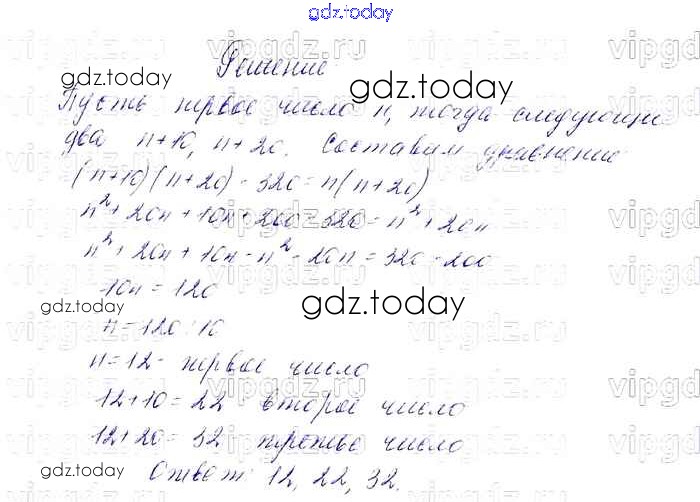 gdz.today
Решение
vipgdz.ru
gdz.today
gdz.today
Пусть первое число n, тогда следующие
два n+10, n+20. Составим уравнение
(n+10)(n+20) - 320 = n(n+20)
n²+20n+10n+200-320=n²+20n
n²+20n+10n-n²-20n=320-200
10n=120
gdz.today
gdz.today
n=120:10
n=12 - первое число
12+10=22 второе число
12+20=32 третье число
gdz.today
Ответ: 12, 22, 32.